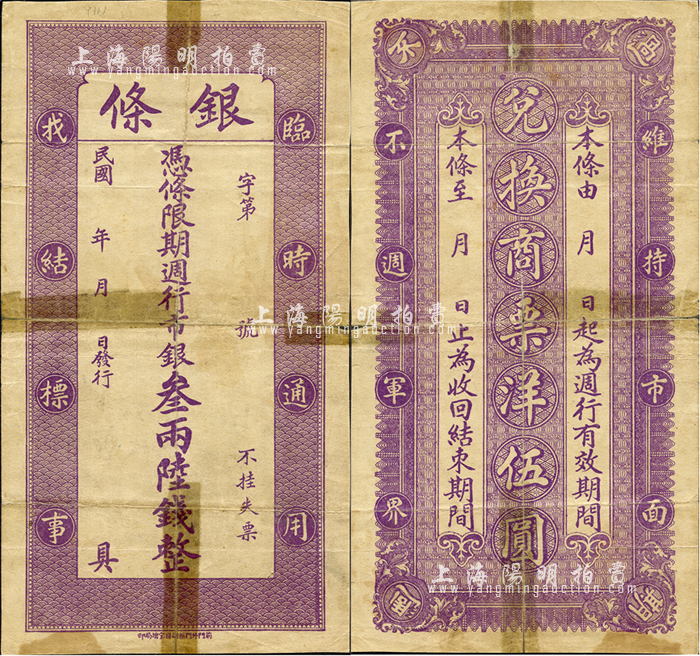 上海陽明拍賣
www.yangmingauction.com
銀條
臨時通用
找結標事
字第 號 不挂失票
憑條限期週行市銀叁兩陸錢整
民國 年 月 日發行 具
上海陽明拍賣
www.yangmingauction.com
維持市面
不週軍界
兌換商票洋伍圓
本條由 月 日起為週行有效期間
本條至 月 日止為收回結束期間
上海陽明拍賣
www.yangmingauction.com